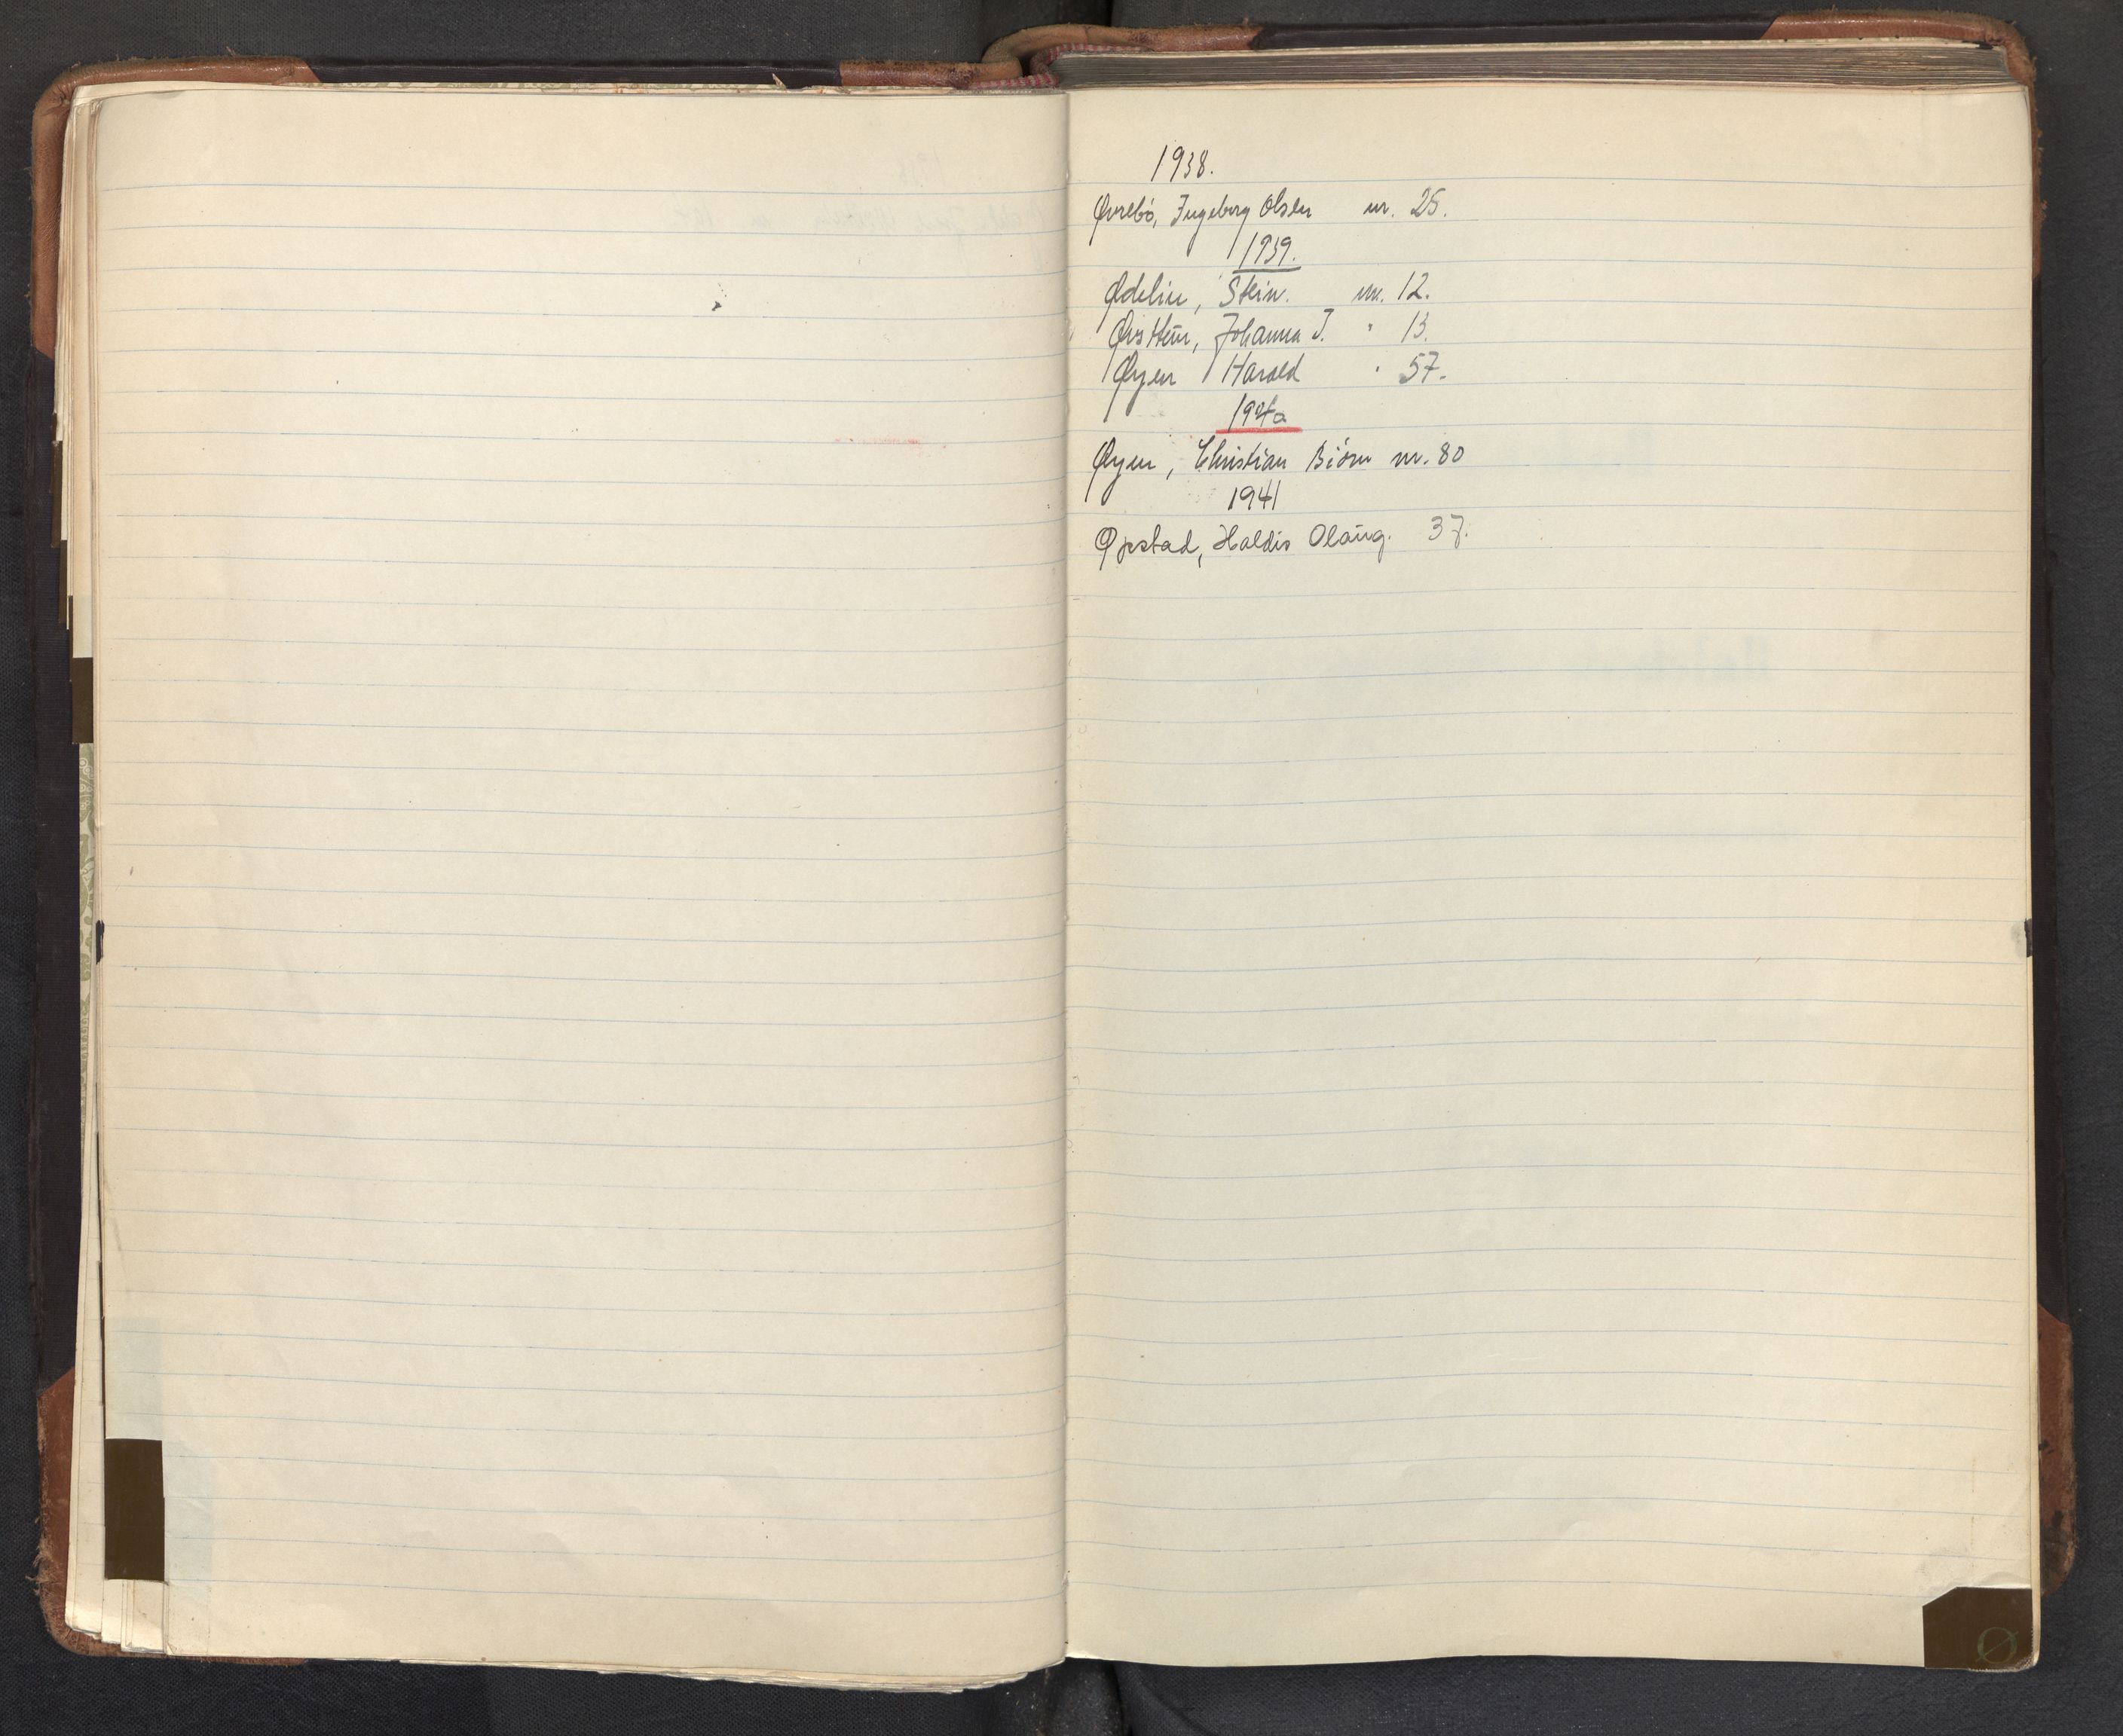 1938.
Øvrebö, Ingeborg Olsen nr. 25.
1939.
Ødelin, Stein. nr. 12.
Johanna J. " 13.
Øyen Harald " 57.
1940
Øyen, Christian Biörn nr. 80
1941
Øpstad, Haldis Olaug. 37.
Ø